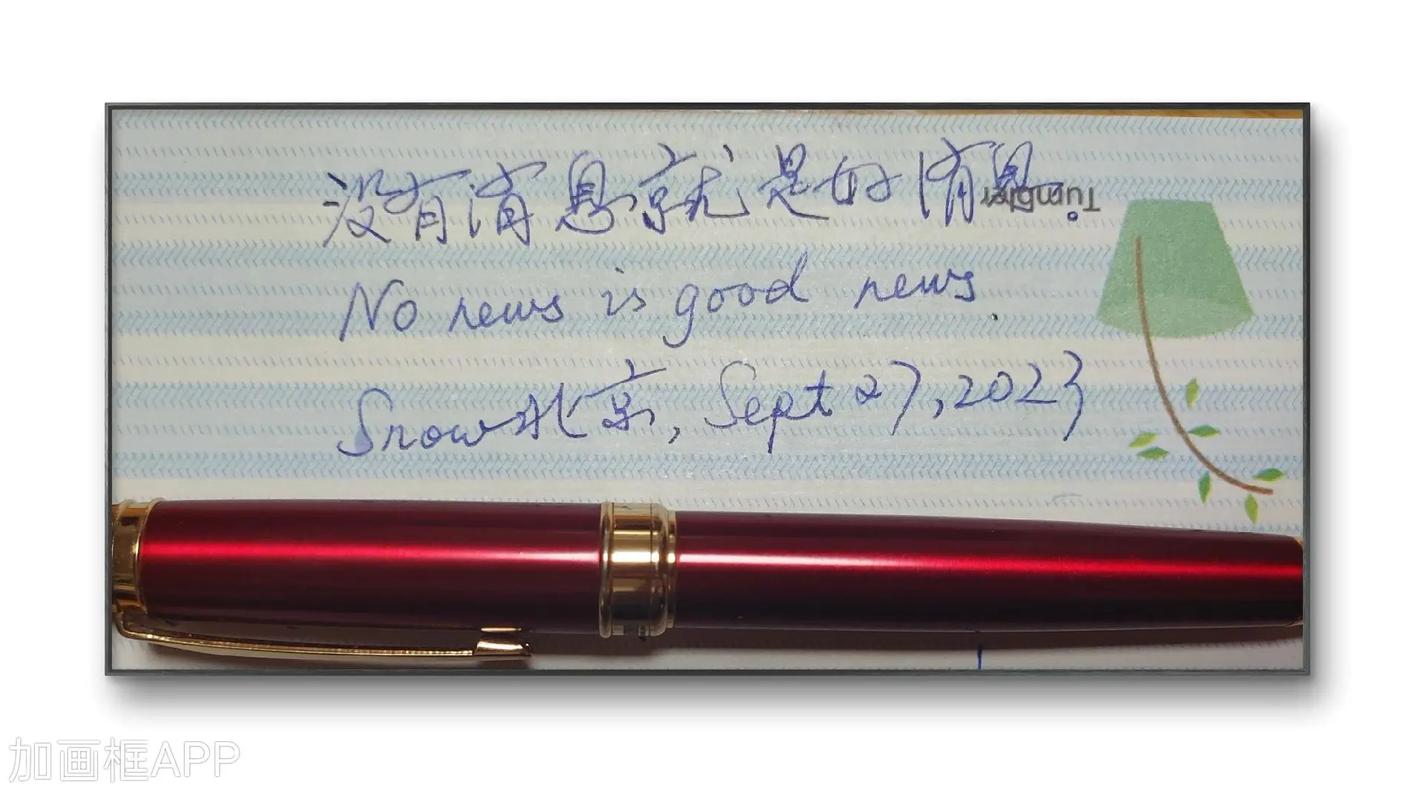 没有消息就是好消息。
Tumbler
No news is good news.
Snow北京, Sept 27, 2023
加画框APP